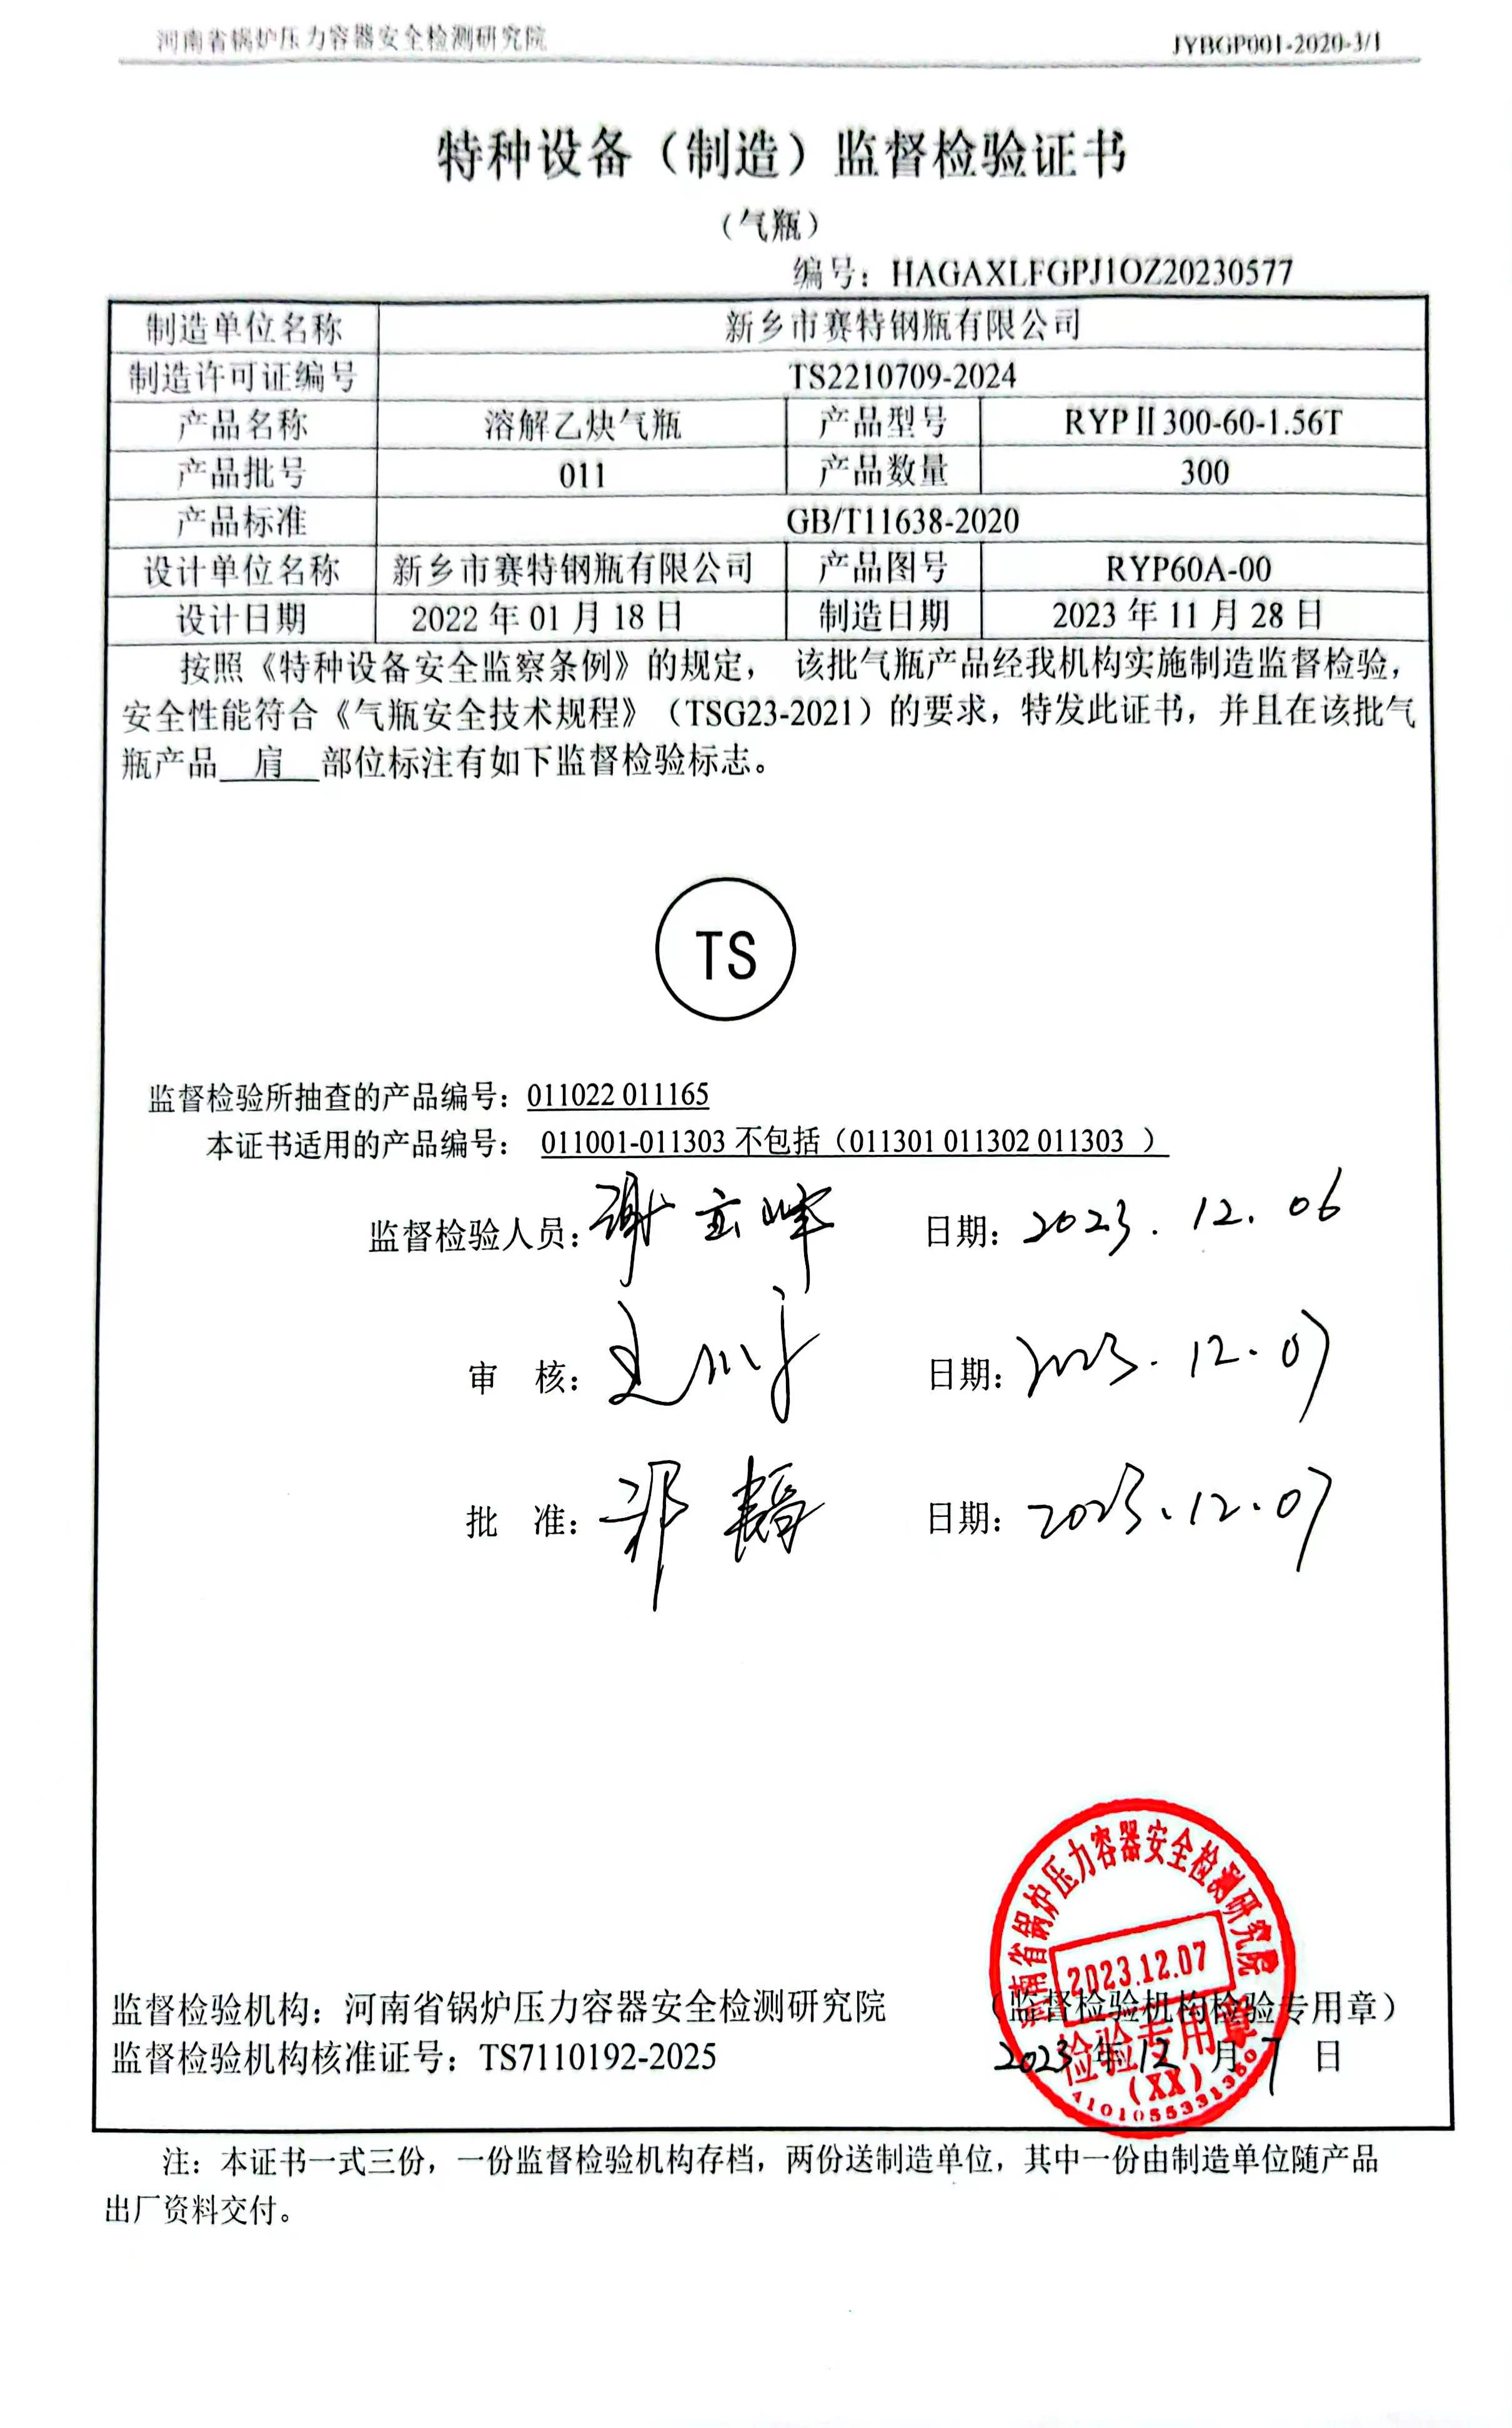 河南省锅炉压力容器安全检测研究院 JYBGP001-2020-3/1
特种设备（制造）监督检验证书
（气瓶）
编号：HAGAXLFGPJ1OZ20230577
制造单位名称 新乡市赛特钢瓶有限公司
制造许可证编号 TS2210709-2024
产品名称 溶解乙炔气瓶 产品型号 RYPⅡ300-60-1.56T
产品批号 011 产品数量 300
产品标准 GB/T11638-2020
设计单位名称 新乡市赛特钢瓶有限公司 产品图号 RYP60A-00
设计日期 2022 年 01 月 18 日 制造日期 2023 年 11 月 28 日
按照《特种设备安全监察条例》的规定， 该批气瓶产品经我机构实施制造监督检验，
安全性能符合《气瓶安全技术规程》（TSG23-2021）的要求，特发此证书，并且在该批气
瓶产品 肩 部位标注有如下监督检验标志。
TS
监督检验所抽查的产品编号：011022 011165
本证书适用的产品编号： 011001-011303 不包括（011301 011302 011303 ）
监督检验人员： 日期：2023.12.06
审 核： 日期：2023.12.07
批 准： 日期：2023.12.07
河南省锅炉压力容器安全检测研究院
2023.12.07
检验专用章
（XX）
监督检验机构：河南省锅炉压力容器安全检测研究院 （监督检验机构检验专用章）
监督检验机构核准证号：TS7110192-2025 2023 年 12 月 7 日
注：本证书一式三份，一份监督检验机构存档，两份送制造单位，其中一份由制造单位随产品
出厂资料交付。